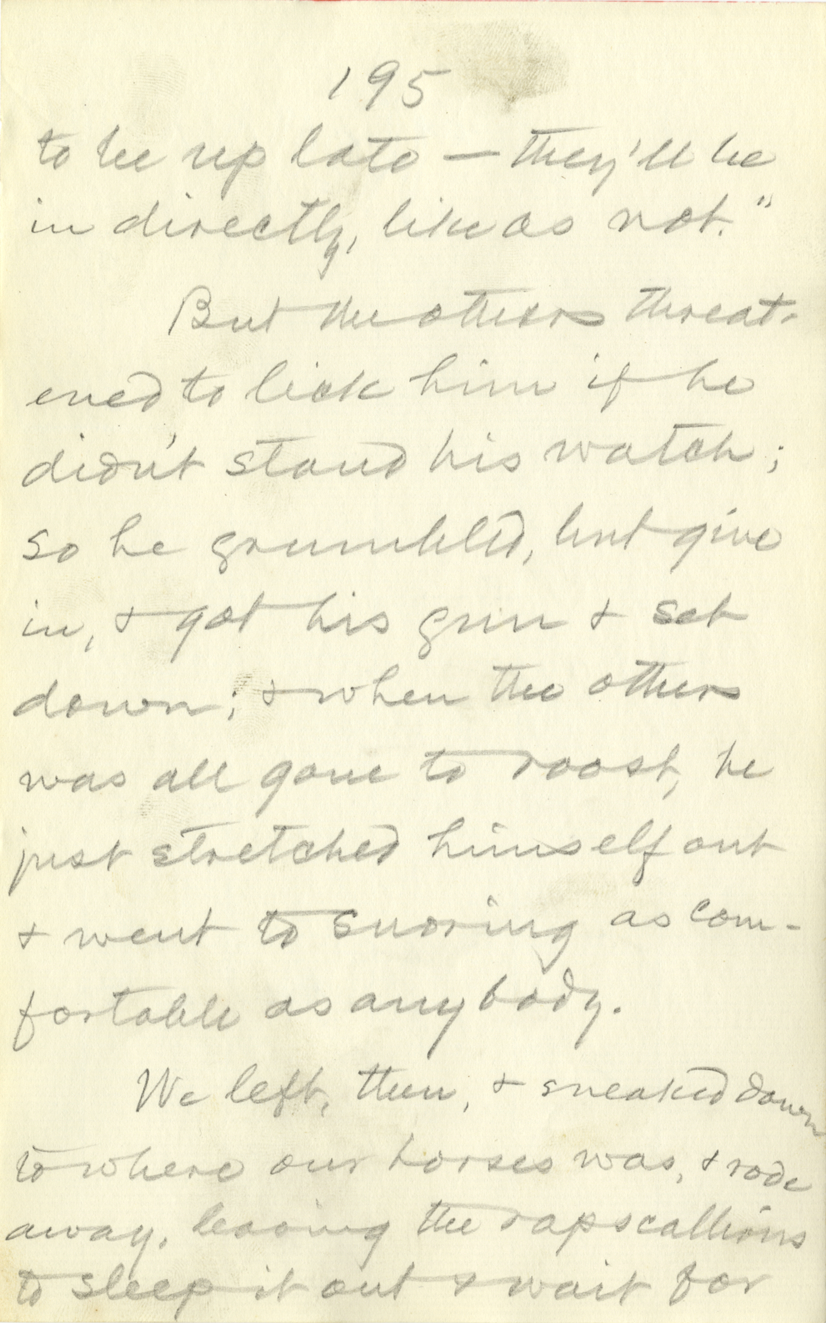 195
to be up late — they'll be
in directly, like as not."
But the others threat-
ened to lick him if he
didn't stand his watch;
so he grumbled, but give
in, & got his gun & set
down; & when the others
was all gone to roost, he
just stretched himself out
& went to snoring as com-
fortable as anybody.
We left, then, & sneaked down
to where our horses was, & rode
away, leaving the rapscallions
to sleep it out & wait for